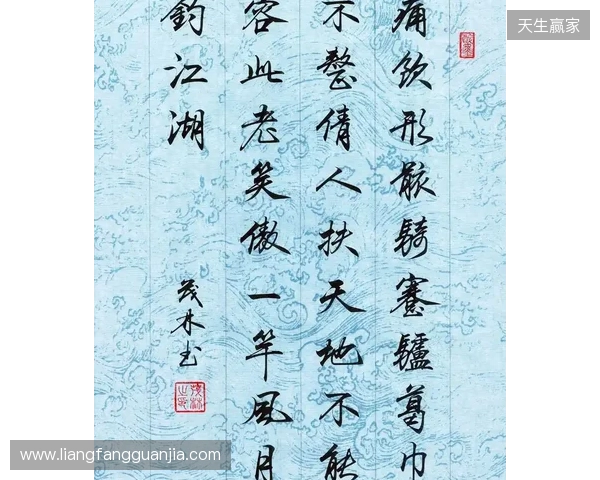 痛飲形骸騎蹇驢葛巾
不整倩人扶天地不能
容此老笑傲一竿風月
釣江湖
茂林书
天生赢家
www.liangfangguanjia.com